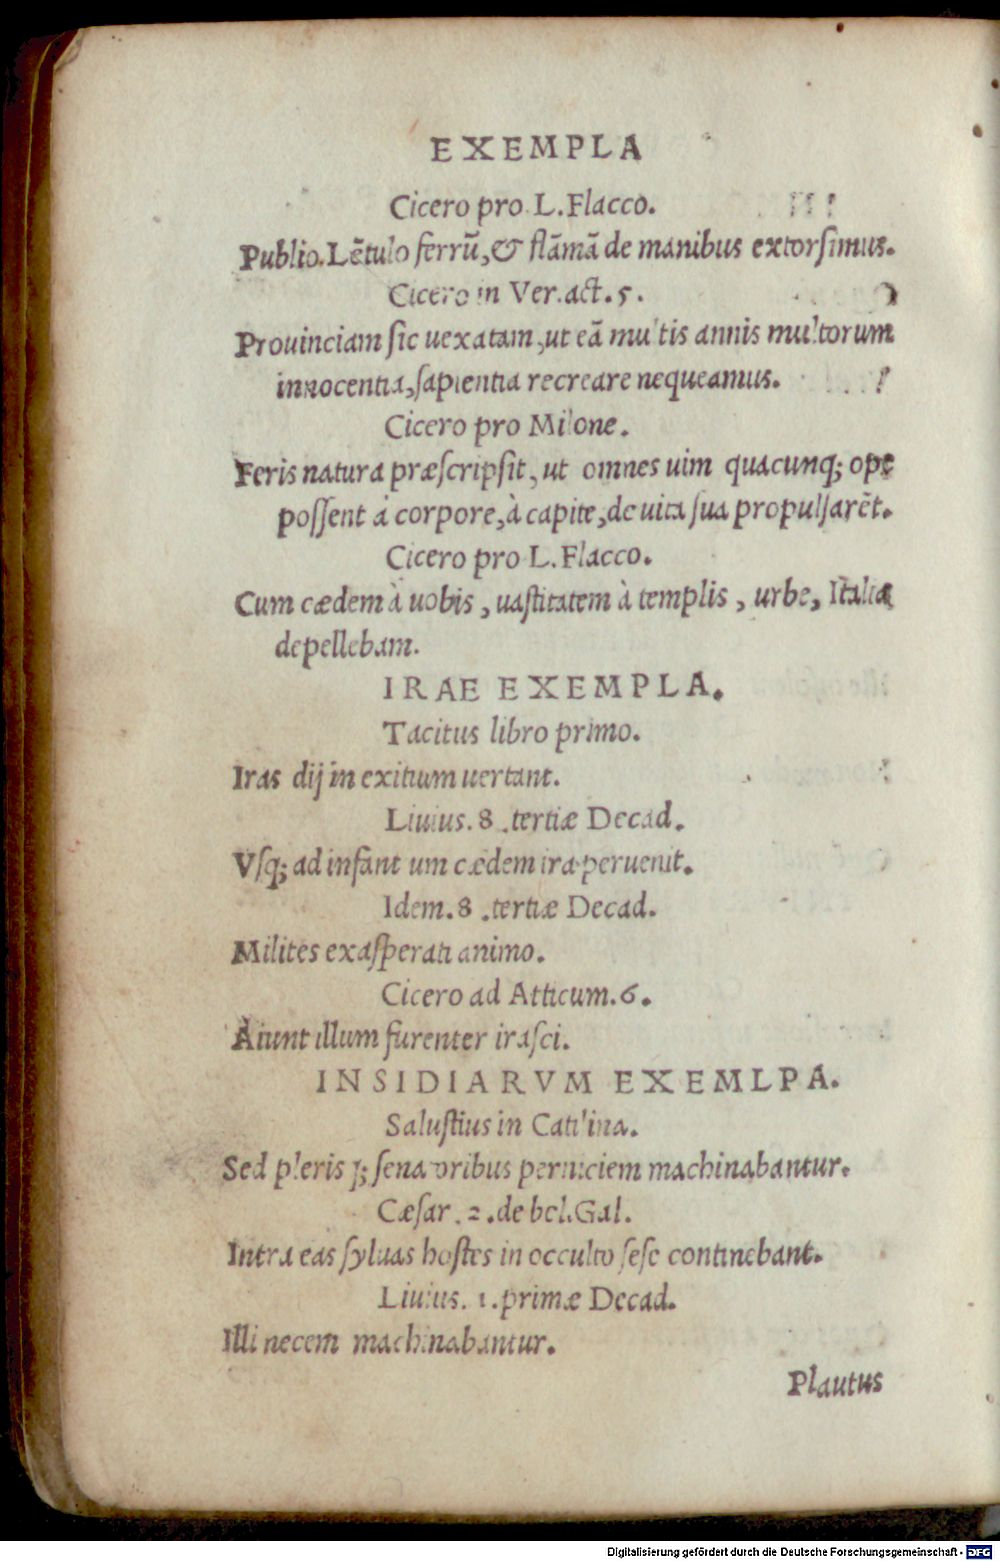 EXEMPLA
Cicero pro L. Flacco.
Publio. Lẽtulo ferrũ, & flãmã de manibus extorſimus.
Cicero in Ver. act. 5.
Prouinciam ſic uexatam, ut eã multis annis multorum
innocentia, ſapientia recreare nequeamus.
Cicero pro Milone.
Feris natura præſcripſit, ut omnes uim quacunq; ope
poſſent à corpore, à capite, de uita ſua propulſarẽt.
Cicero pro L. Flacco.
Cum cædem à uobis, uaſtitatem à templis, urbe, Italia
depellebam.
IRAE EXEMPLA.
Tacitus libro primo.
Iras dij in exitium uertant.
Liuius. 8. tertiæ Decad.
Vſq; ad infantium cædem ira peruenit.
Idem. 8. tertiæ Decad.
Milites exaſperati animo.
Cicero ad Atticum. 6.
Aiunt illum furenter iraſci.
INSIDIARVM EXEMLPA.
Saluſtius in Catilina.
Sed pleriſq; ſenatoribus perniciem machinabantur.
Cæſar. 2. de bel. Gal.
Intra eas ſyluas hoſtes in occulto ſeſe continebant.
Liuius. 1. primæ Decad.
Illi necem machinabantur.
Plautus
Digitalisierung gefördert durch die Deutsche Forschungsgemeinschaft - DFG